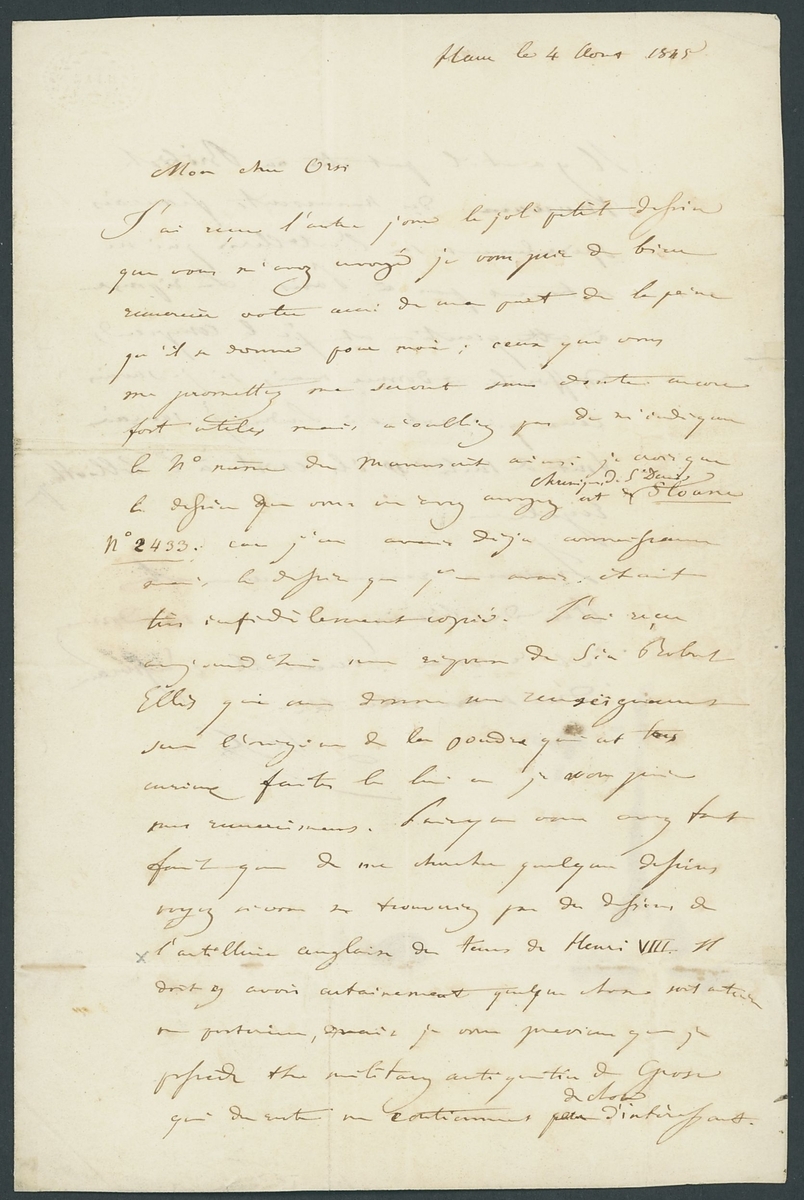 Ham le 4 Aout 1845
Mon cher Orsi
J'ai reçu l'autre jour le joli petit dessin
que vous m'avez envoyé je vous prie de bien
remercier votre ami de ma part de la peine
qu'il se donne pour moi; ceux que vous
me promettez me seront sans doute encore
fort utiles mais n'oubliez pas de m'indiquer
le N° même du Manuscrit ainsi je crois que
chronique de St Denis
le dessin que vous m'avez envoyez est de Sloane
N° 2433. car j'en avais déjà connaissance
mais le dessin que j'en avais était
très infidèlement copié. J'ai reçu
aujourd'hui une réponse de Sir Robert
Ellis qui me donne un renseignement
sur l'origine de la poudre qui est très
curieux faites lui en je vous prie
mes remerciemens. Puisque vous avez tant
fait que de me chercher quelques dessins
voyez si vous ne trouveriez pas des dessins de
x l'artillerie anglaise du tems de Henri VIII. Il
doit y avoir certainement quelque chose soit
mais je vous previens que je
possède the military antiquities de Grose
de chose
qui du reste ne contiennent peu d'intéressant.